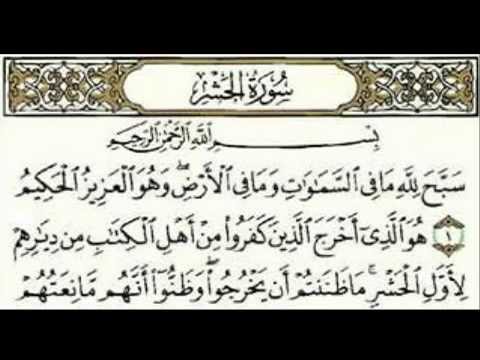 سُورَةُ الحَشْرِ
بِسْمِ ٱللَّهِ ٱلرَّحْمَٰنِ ٱلرَّحِيمِ
سَبَّحَ لِلَّهِ مَا فِي ٱلسَّمَٰوَٰتِ وَمَا فِي ٱلْأَرْضِۖ وَهُوَ ٱلْعَزِيزُ ٱلْحَكِيمُ
١ هُوَ ٱلَّذِيٓ أَخْرَجَ ٱلَّذِينَ كَفَرُوا۟ مِنْ أَهْلِ ٱلْكِتَٰبِ مِن دِيَٰرِهِمْ
لِأَوَّلِ ٱلْحَشْرِۚ مَا ظَنَنتُمْ أَن يَخْرُجُوا۟ۖ وَظَنُّوٓا۟ أَنَّهُم مَّانِعَتُهُمْ